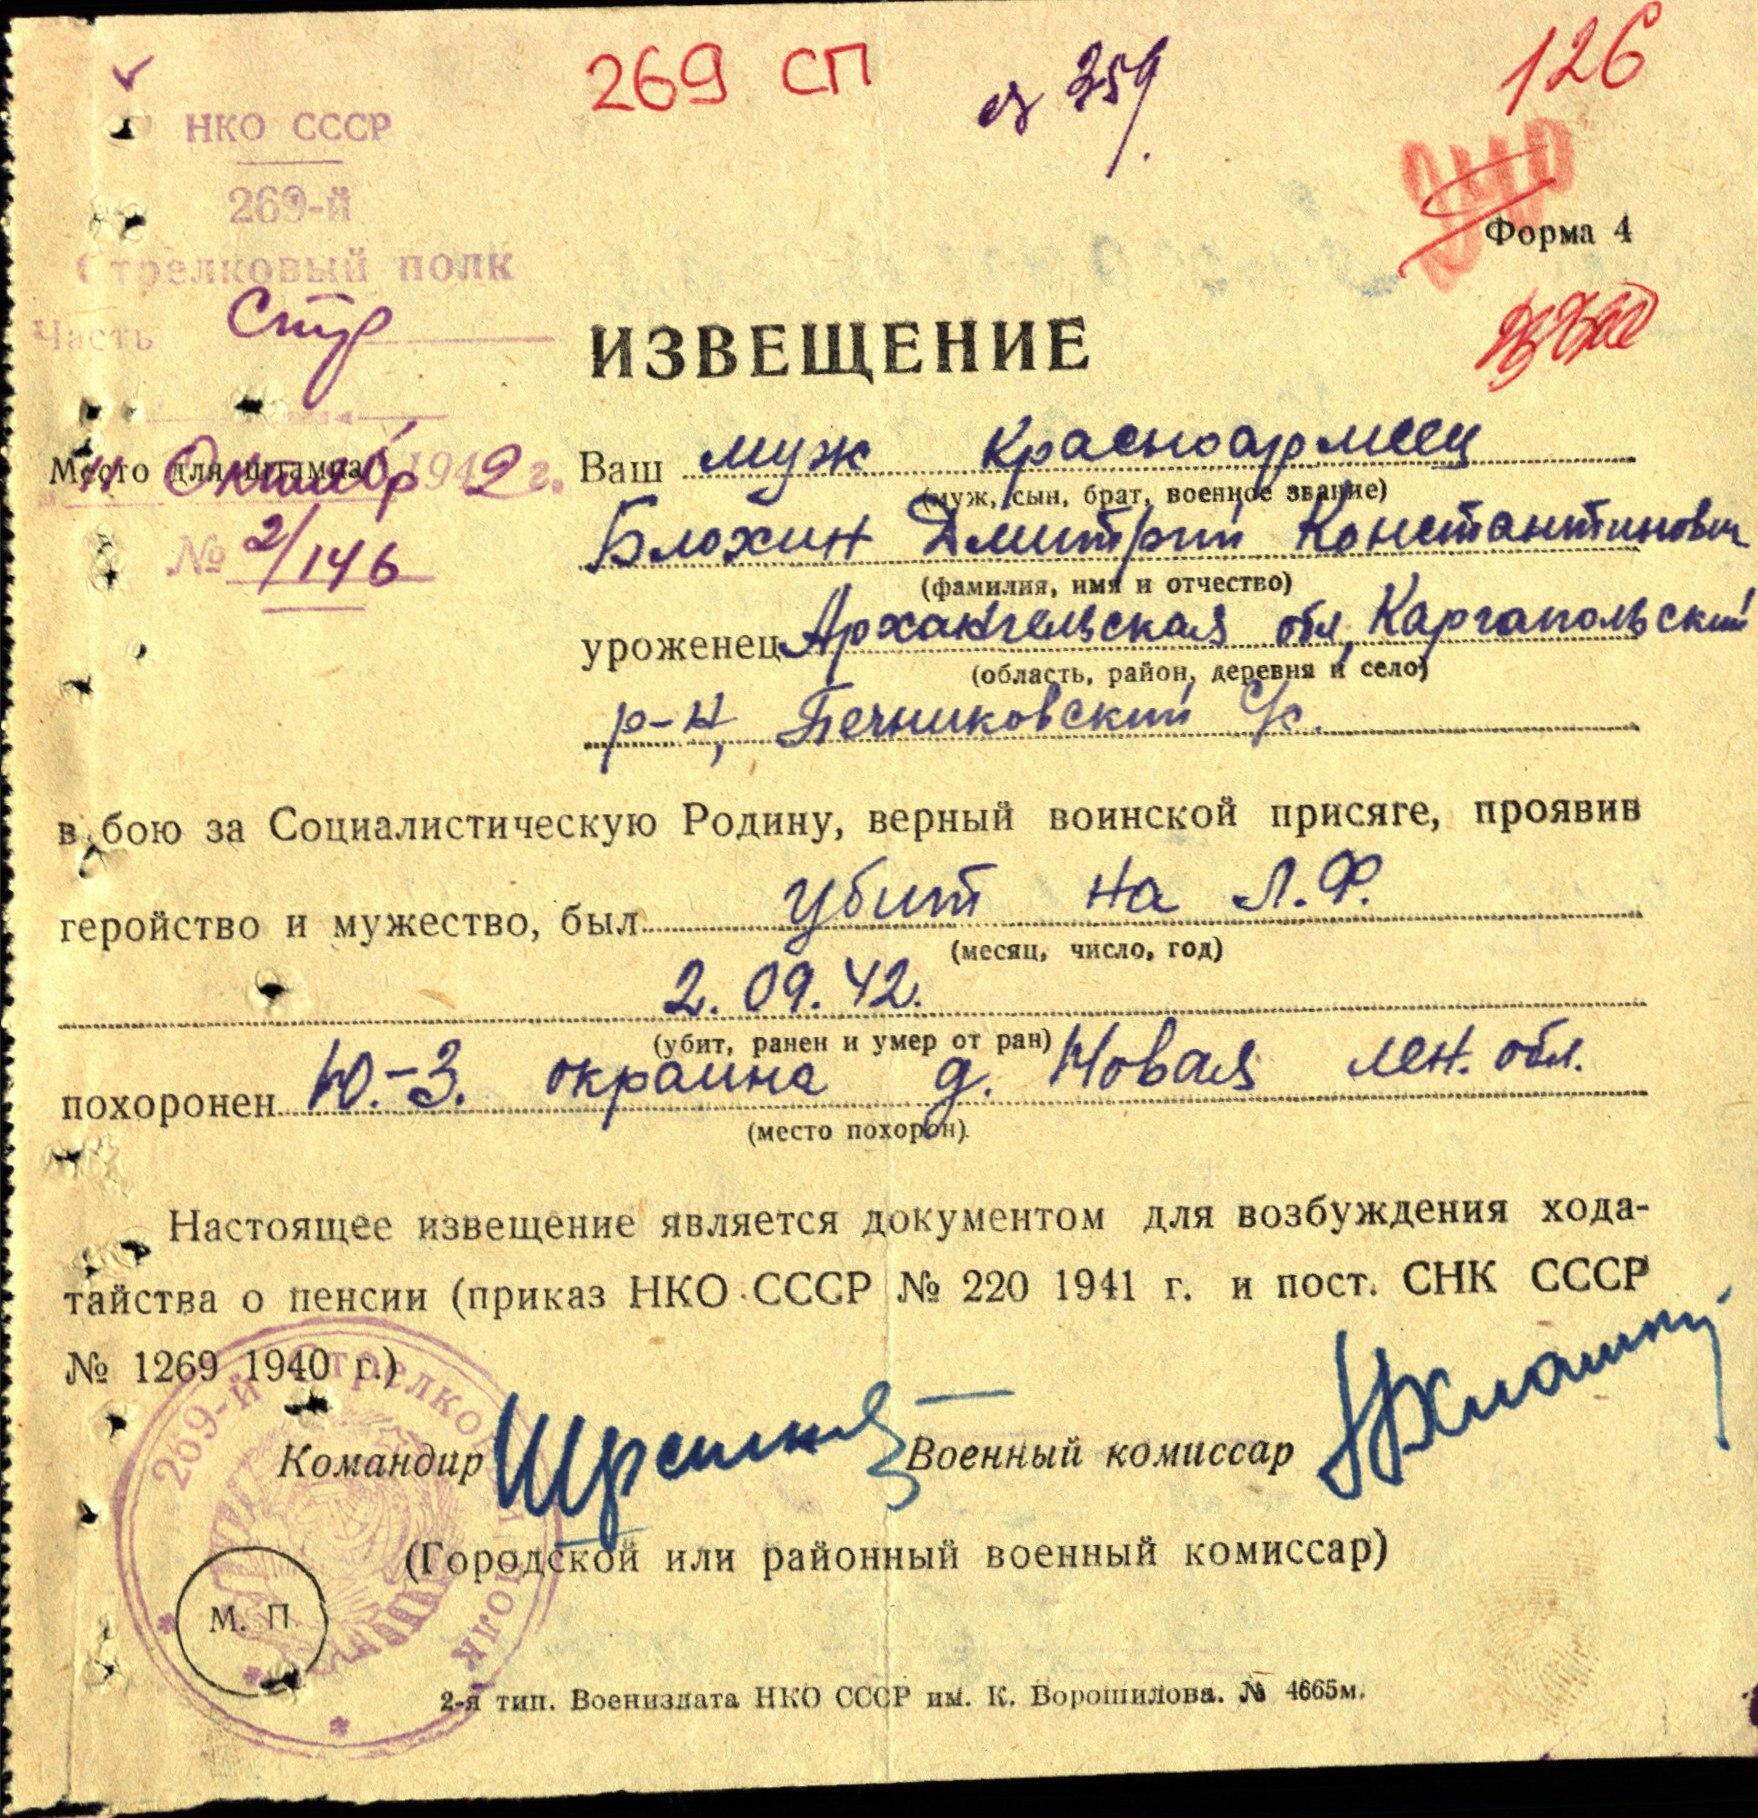 269 СП
359
126
НКО СССР
269-й
Стрелковый полк
Форма 4
Часть Стр
ИЗВЕЩЕНИЕ
Место для штампа
11 Октябр 1942 г.
№ 2/146
Ваш муж красноармеец
(муж, сын, брат, военное звание)
Блохин Дмитрий Константинович
(фамилия, имя и отчество)
уроженец Архангельская обл, Каргапольский
(область, район, деревня и село)
р-н, Печниковский с/с.
в бою за Социалистическую Родину, верный воинской присяге, проявив
геройство и мужество, был убит на Л.Ф.
(месяц, число, год)
2.09.42.
(убит, ранен и умер от ран)
похоронен Ю.-З. окраина д. Новая лен. обл.
(место похорон)
Настоящее извещение является документом для возбуждения хода-
тайства о пенсии (приказ НКО СССР № 220 1941 г. и пост. СНК СССР
№ 1269 1940 г.)
269-й Стрелковый полк
Командир
Военный комиссар
(Городской или районный военный комиссар)
М. П.
2-я тип. Воениздата НКО СССР им. К. Ворошилова. № 4665м.